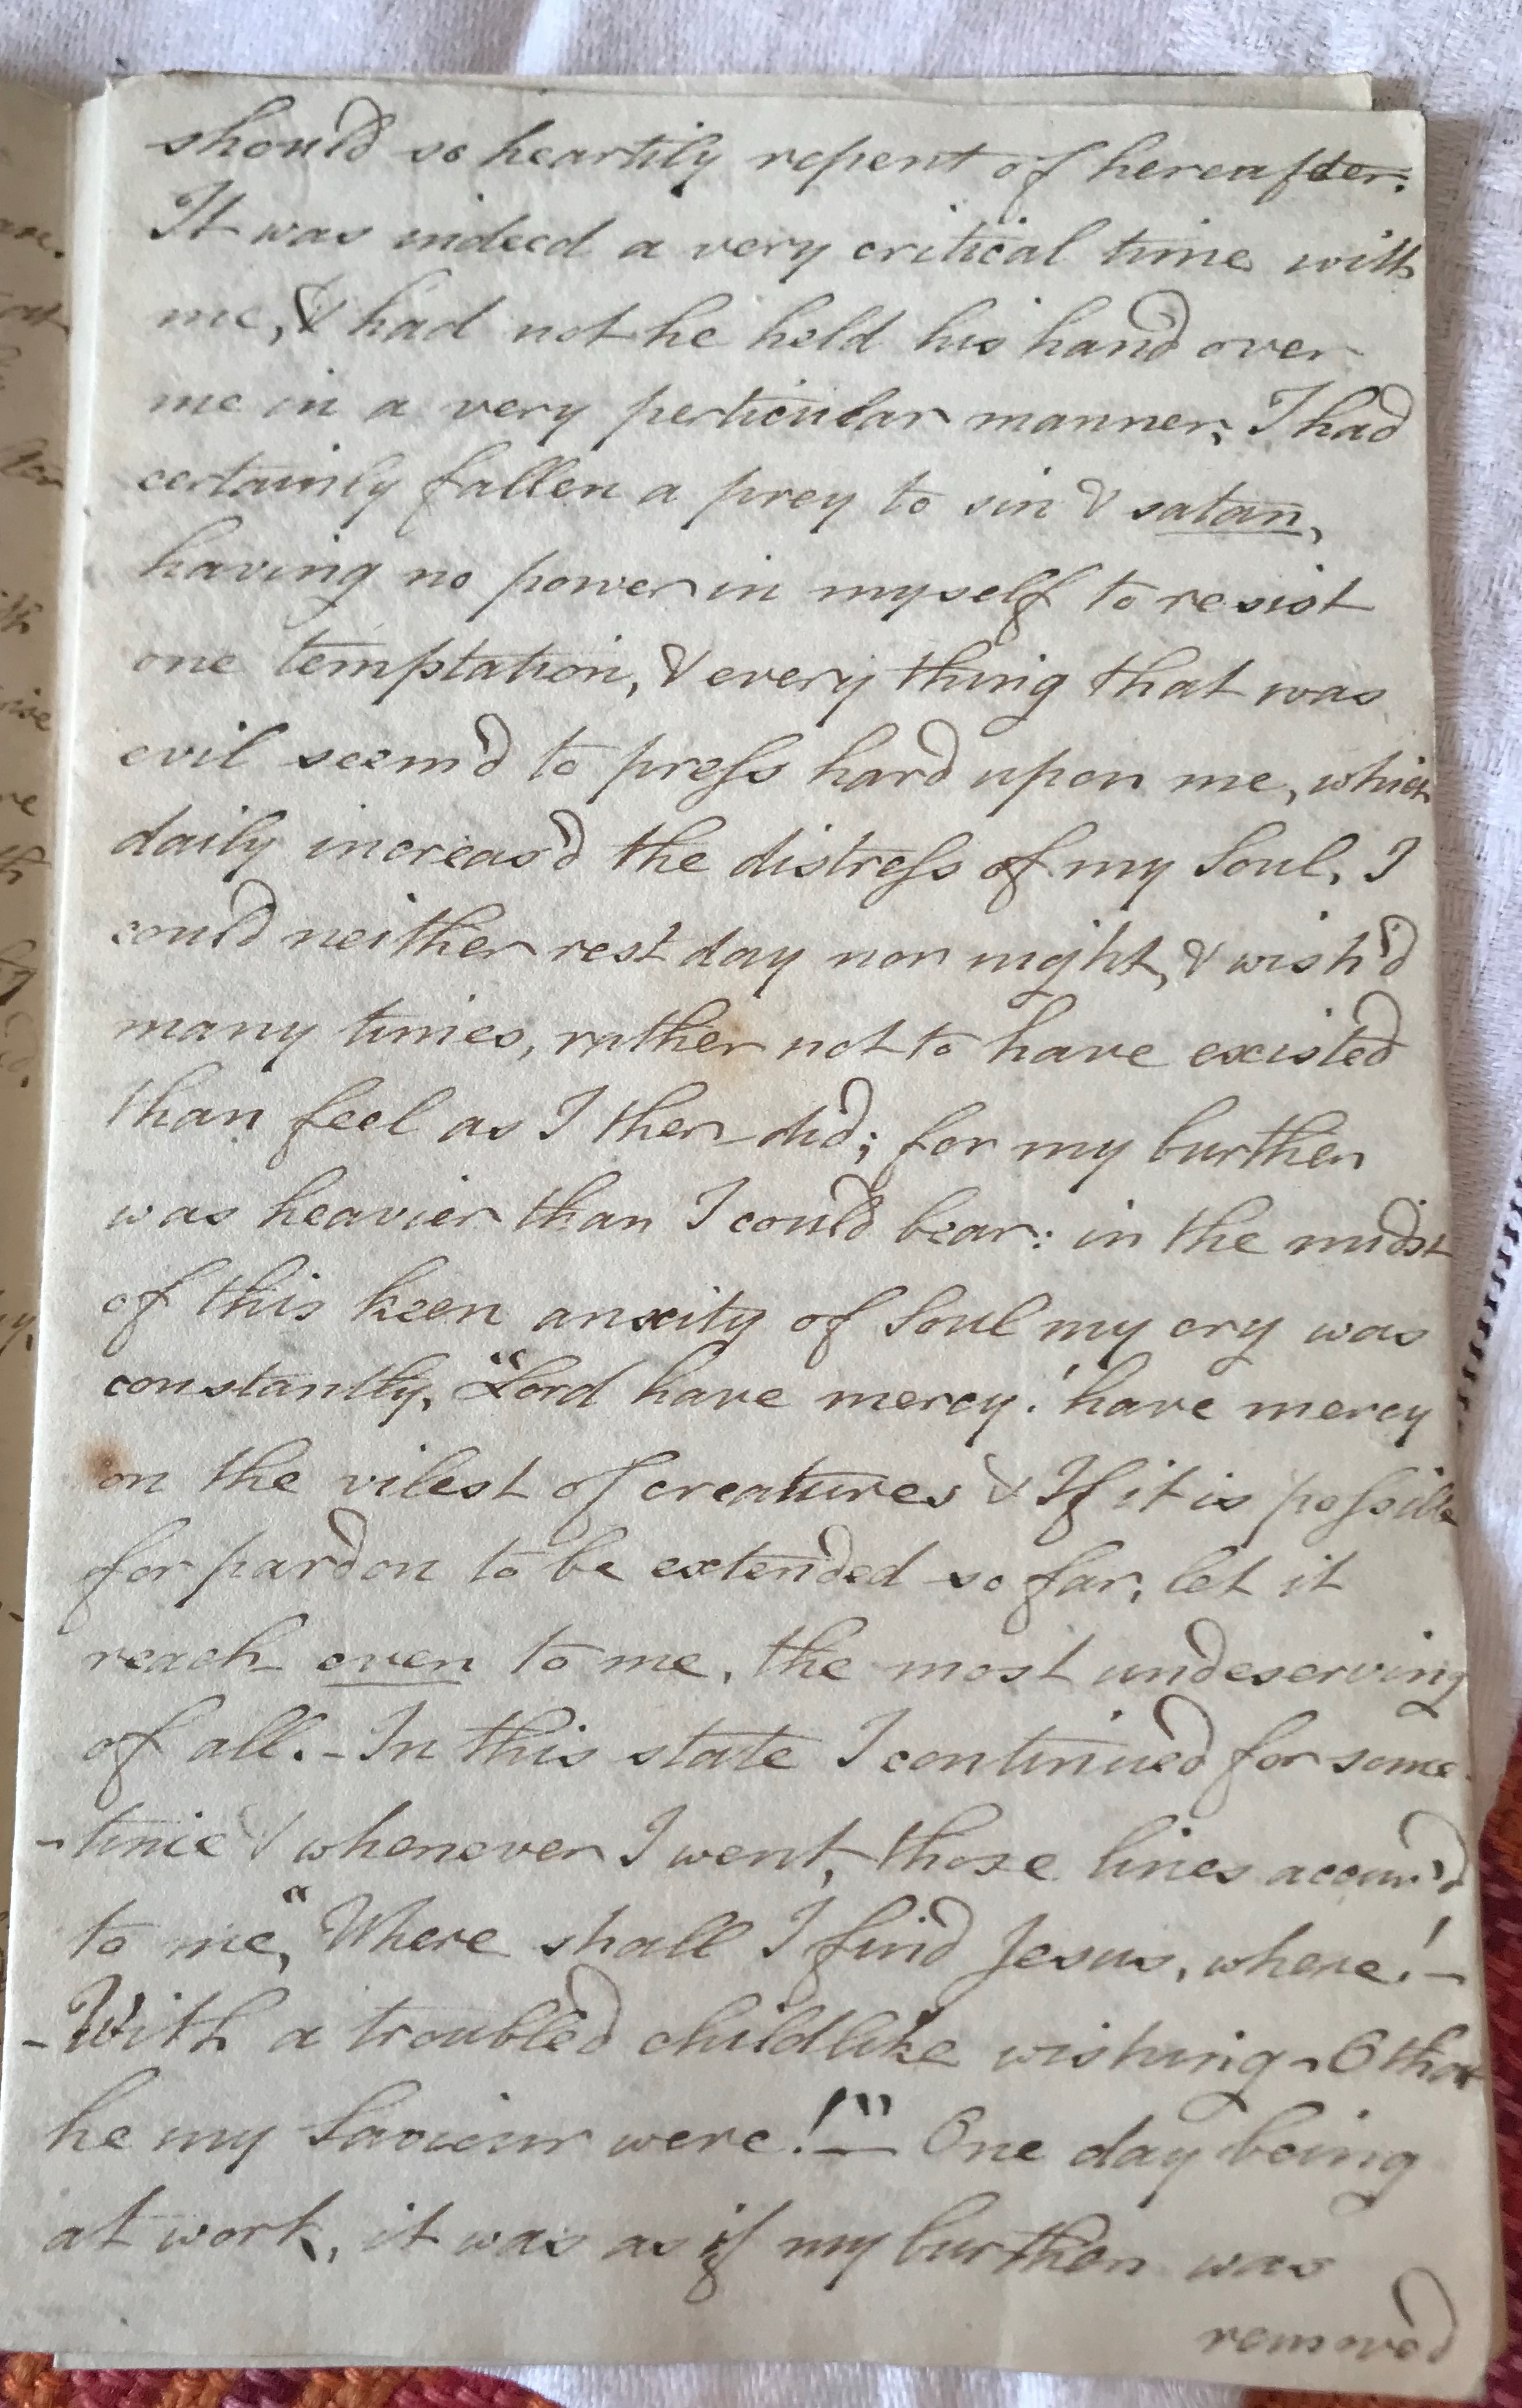 should so heartily repent of hereafter.
It was indeed a very critical time with
me, & had not he held his hand over
me in a very perticular manner, I had
certainly fallen a prey to sin & satan,
having no power in myself to resist
one temptation, & every thing that was
evil seem'd to press hard upon me, which
daily increas'd the distress of my Soul, I
could neither rest day nor night, & wish'd
many times, rather not to have existed
than feel as I then did; for my burthen
was heavier than I could bear: in the midst
of this keen anxity of Soul my cry was
constantly, "Lord have mercy! have mercy
on the vilest of creatures & If it is possible
for pardon to be extended so far, let it
reach even to me, the most undeserving
of all. - In this state I continued for some
-time & whenever I went, those lines accurr'd
to me, "Where shall I find Jesus, where! -
- With a troubled childlike wishing - O that
he my Saviour were!" — One day being
at work, it was as if my burthen was
removed